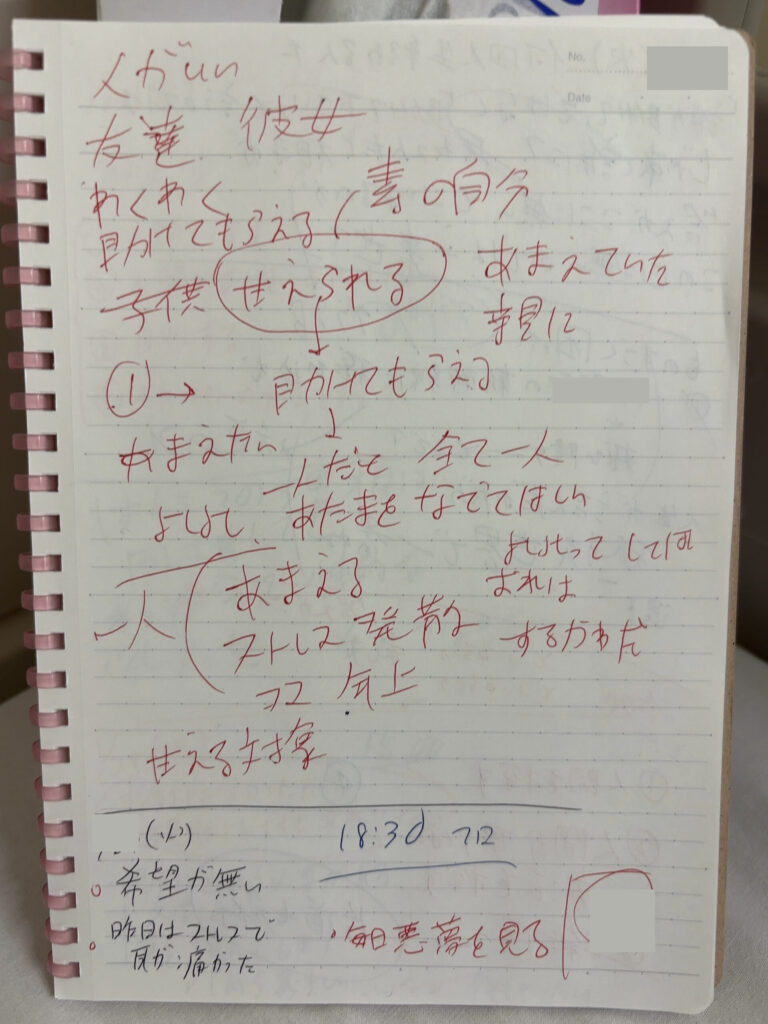 No.
Date
人がいい
友達 彼女
わくわく 素の自分
助けてもらえる
子供 甘えられる あまえていた
親に
①→ 助けてもらえる
あまえたい
一人だと 全て一人
よしよし、あたまを なでてほしい
よしよって してほ
一人 あまえる おれは
ストレス発散 するがわだ
フロ 年上
甘える対象
18:30 フロ
希望が無い
昨日はストレスで
・毎日悪夢を見る
痛かった